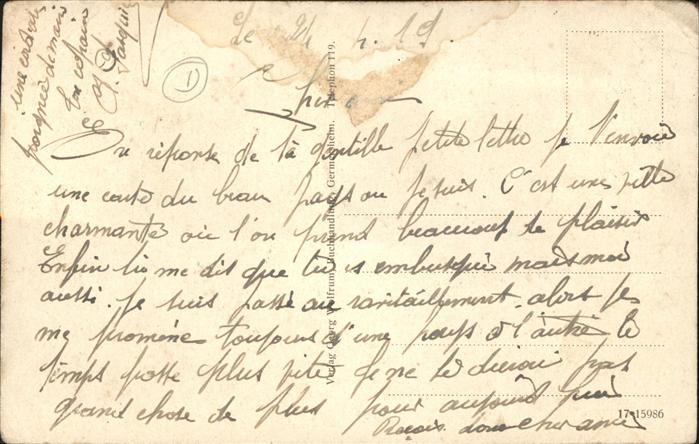 Le 24 4. 19.
En réponse de ta gentille petite lettre je t'envoie
une carte du beau pays ou je suis. C'est une ville
charmante où l'on prend beaucoup de plaisir
Enfin tu me dit que tu es embusqué mais moi
aussi. Je suis passé au ravitaillement alors je
me promène toujours d'une pays à l'autre le
temps passe plus vite je ne te dirai pas
grand chose de plus pour aujourd'hui
Reçois donc cher ami
une cordiale
poignée de main
Ton copain
1
Verlag Georg Wolfrum, Buchhandlung, Germersheim. Telephon 119.
17-15986